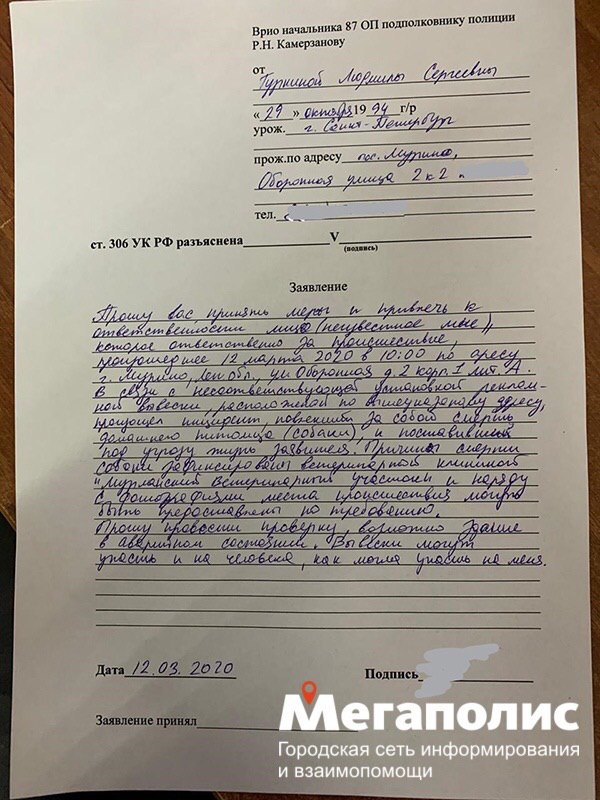 Врио начальника 87 ОП подполковнику полиции
Р.Н. Камерзанову
от
Людмилы Сергеевны
« 29 » октября 19 94 г/р
урож. г. Санкт-Петербург
прож.по адресу пос. Мурино,
Оборонная улица 2 к 2
тел.
ст. 306 УК РФ разъяснена V
(подпись)
Заявление
Прошу вас принять меры и привлечь к
ответственности лица (неизвестное мне),
которое ответственно за происшествие,
произошедшее 12 марта 2020 в 10:00 по адресу
г. Мурино, Лен Обл, ул Оборонная д. 2 корп. 1 лит. А.
В связи с несоответствующей установкой реклам-
ной вывески, расположеной по вышеуказаному адресу,
произошел инцидент, повлекший за собой смерть
домашнего питомца (собаки), и поставивший
под угрозу жизнь заявителя. Причины смерти
собаки зафиксированы ветеринарной клиникой
"Муринский ветеринарный участок" и наряду
с фотографиями места происшествия могут
быть предоставлены по требованию.
Прошу провести проверку, возможно здание
в аварийном состоянии. Вывески могут
упасть и на человека, как могла упасть на меня.
Дата 12.03.2020 Подпись
Заявление принял
Мегаполис
Городская сеть информирования
и взаимопомощи